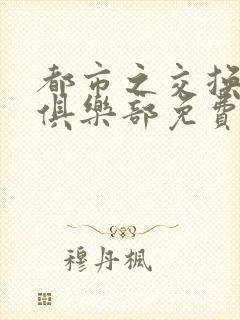 都市之交换
俱樂部免費
穆丹楓